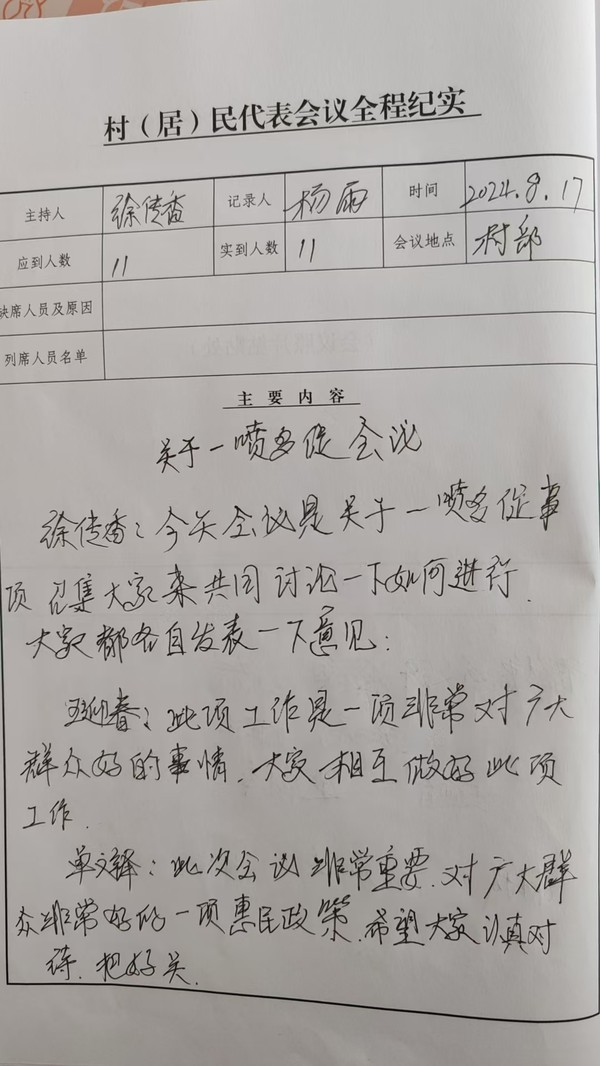 村（居）民代表会议全程纪实
主持人 徐传香 记录人 杨雨 时间 2024.8.17
应到人数 11 实到人数 11 会议地点 村部
缺席人员及原因
列席人员名单
主要内容
关于一喷多促会议
徐传香：今天会议是关于一喷多促事
项召集大家来共同讨论一下如何进行.
大家都各自发表一下意见：
迎春：此项工作是一项非常对广大
群众好的事情.大家相互做好此项
工作.
单文锋：此次会议非常重要.对广大群
众非常好的一项惠民政策.希望大家认真对
待.把好关.